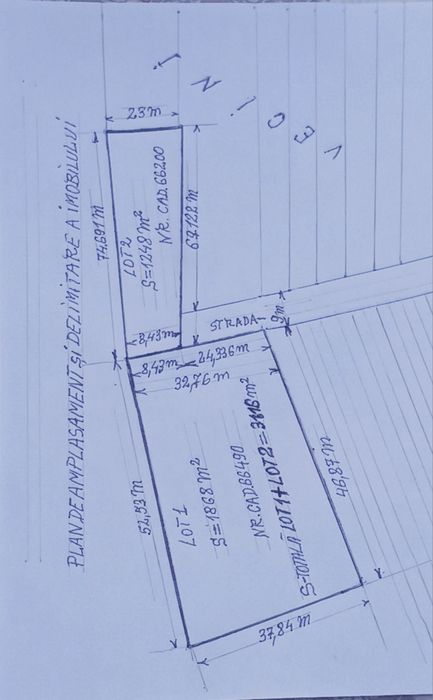 PLAN DE AMPLASAMENT ȘI DELIMITARE A IMOBILULUI
VECINI
23 m
74,691 m
LOT 2
S=1248 m²
NR. CAD.66200
67,128 m
8,43 m
STRADA
9m
8,43 m
24,336 m
32,76 m
52,53 m
LOT 1
S=1868 m²
NR.CAD.66490
S-TOTALĂ LOT1+LOT2=3116 m²
46,87 m
37,84 m